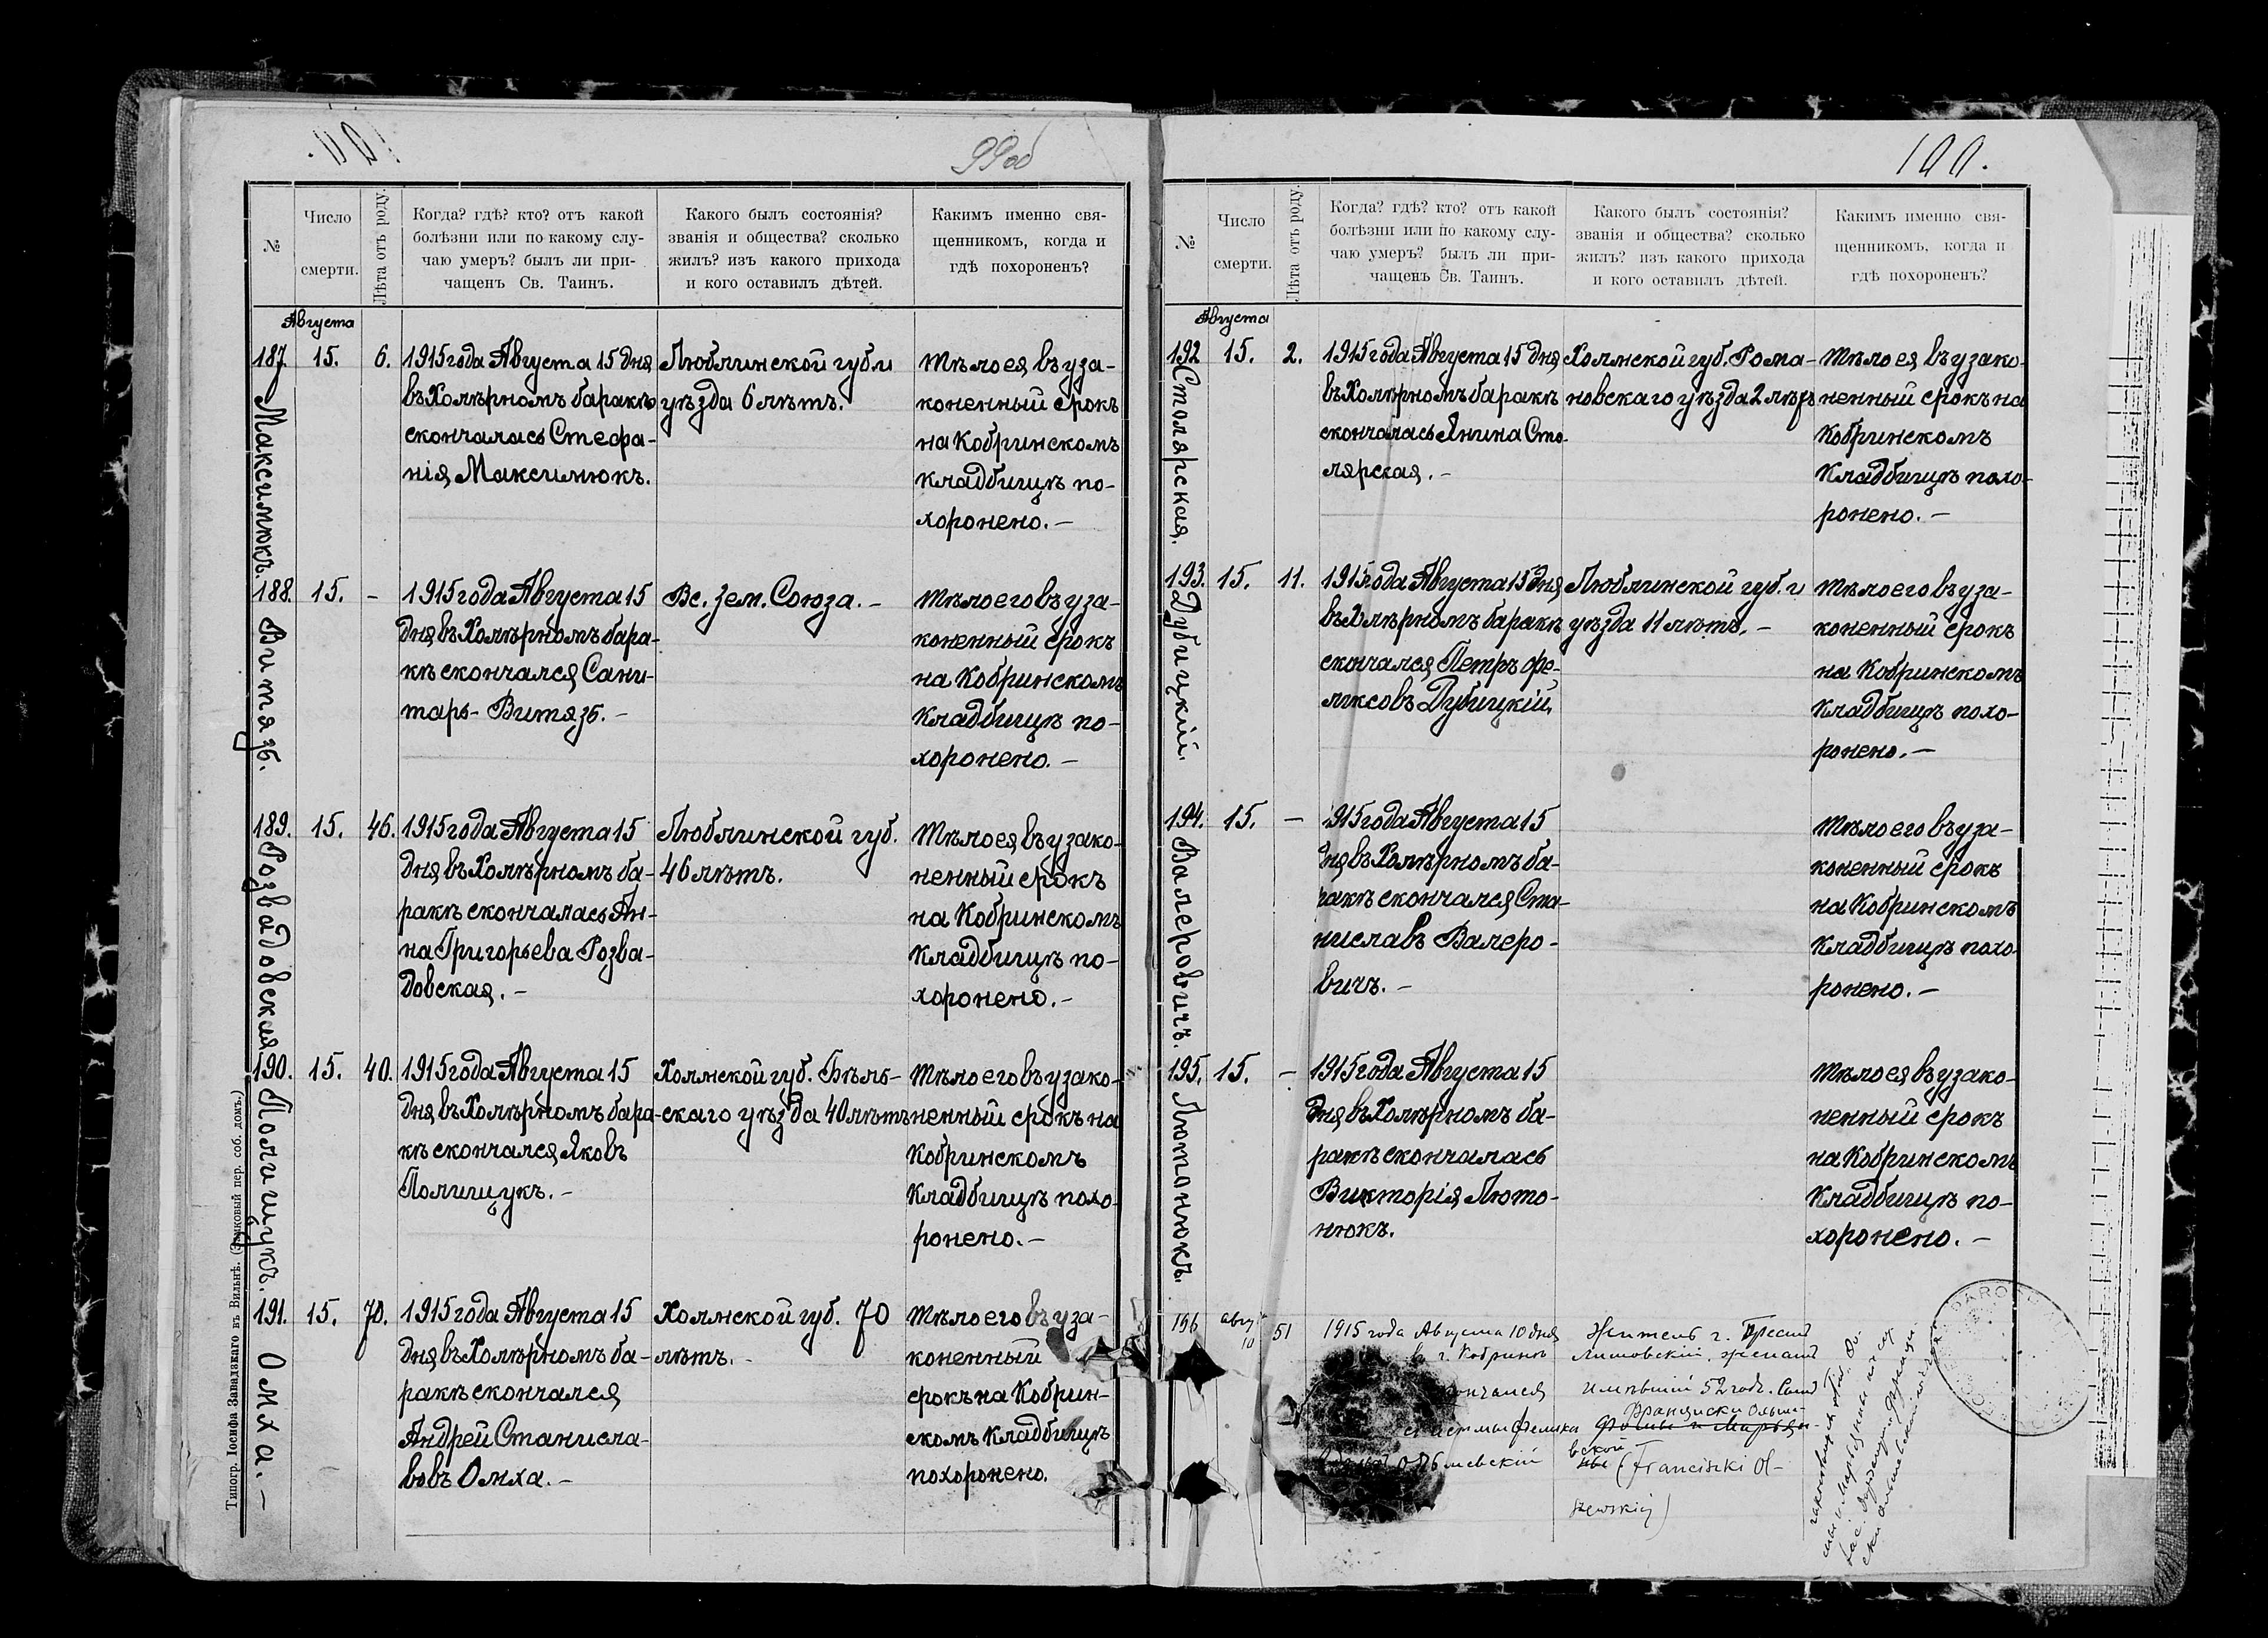 99об
№
Число
смерти.
Лѣта отъ роду.
Когда? гдѣ? кто? отъ какой
болѣзни или по какому слу-
чаю умеръ? былъ ли при-
чащенъ Св. Таинъ.
Какого былъ состоянія?
званія и общества? сколько
жилъ? изъ какого прихода
и кого оставилъ дѣтей.
Какимъ именно свя-
щенникомъ, когда и
гдѣ похороненъ?
Августа
187
15.
6.
Максимюкъ.
1915 года Августа 15 дня
въ Холѣрномъ баракѣ
скончалась Стефа-
нія Максимюкъ.
Люблинской губ. и
уѣзда 6 лѣтъ.
тѣло ея въ уза-
коненный срокъ
на Кобринскомъ
кладбищѣ по-
хоронено. –
188.
15.
–
Витязь.
1915 года Августа 15
дня въ Холѣрномъ бара-
кѣ скончался Сани-
таръ - Витязь. –
Вс. Зем. Союза. –
тѣло его въ уза-
коненный срокъ
на Кобринскомъ
кладбищѣ по-
хоронено. –
189.
15.
46.
Розвадовская
1915 года Августа 15
дня въ Холѣрномъ ба-
ракѣ скончалась Ан-
на Григорьева Розва-
довская. –
Люблинской губ.
46 лѣтъ.
тѣло ея въ узако-
ненный срокъ
на Кобринскомъ
кладбищѣ по-
хоронено. –
190.
15.
40.
Полищукъ.
1915 года Августа 15
дня въ Холѣрномъ бара-
кѣ скончался Яковъ
Полищукъ. –
Холмской губ. Бѣль-
скаго уѣзда 40 лѣтъ
тѣло его въ узако-
ненный срокъ на
Кобринскомъ
кладбищѣ похо-
ронено. –
191.
15.
70.
Омха. –
1915 года Августа 15
дня въ Холѣрномъ ба-
ракѣ скончался
Андрей Станисла-
вовъ Омха. –
Холмской губ. 70
лѣтъ. –
тѣло его въ уза-
коненный
срокъ на Кобрин-
скомъ кладбищѣ
похоронено.
Типогр. Іосифа Завадзкаго въ Вильнѣ. (Замковый пер. соб. домъ.)
100.
№
Число
смерти.
Лѣта отъ роду.
Когда? гдѣ? кто? отъ какой
болѣзни или по какому слу-
чаю умеръ? былъ ли при-
чащенъ Св. Таинъ.
Какого былъ состоянія?
званія и общества? сколько
жилъ? изъ какого прихода
и кого оставилъ дѣтей.
Какимъ именно свя-
щенникомъ, когда и
гдѣ похороненъ?
Августа
192
15.
2.
Столярская.
1915 года Августа 15 дня
въ Холѣрномъ баракѣ
скончалась Янина Сто-
лярская. –
Холмской губ. Рома-
новскаго уѣзда 2 лѣтъ
тѣло ея въ узако-
ненный срокъ на
Кобринскомъ
кладбищѣ похо-
ронено. –
193.
15.
11.
Дубицкій.
1915 года Августа 15 дня
въ Холѣрномъ баракѣ
скончался Петръ Фе-
ликсовъ Дубицкій.
Люблинской губ. и
уѣзда 11 лѣтъ. –
тѣло его въ уза-
коненный срокъ
на Кобринскомъ
кладбищѣ похо-
ронено. –
194.
15.
–
Валеровичъ.
1915 года Августа 15
дня въ Холѣрномъ ба-
ракѣ скончался Ста-
ниславъ Валеро-
вичъ. –
тѣло его въ уза-
коненный срокъ
на Кобринскомъ
кладбищѣ похо-
ронено. –
195.
15.
–
Лютонюкъ.
1915 года Августа 15
дня въ Холѣрномъ ба-
ракѣ скончалась
Викторія Люто-
нюкъ.
тѣло ея въ узако-
ненный срокъ
на Кобринскомъ
кладбищѣ по-
хоронено. –
196
авгу
10
51
1915 года Августа 10 дня
г. Кобринѣ
Житель г. Брест
Литовскій, женат
имѣвшій 52 год.
Франциски Ольше-
вской
Фомы и Марьян-
ны (Franciszki Ol-
szewskiej)